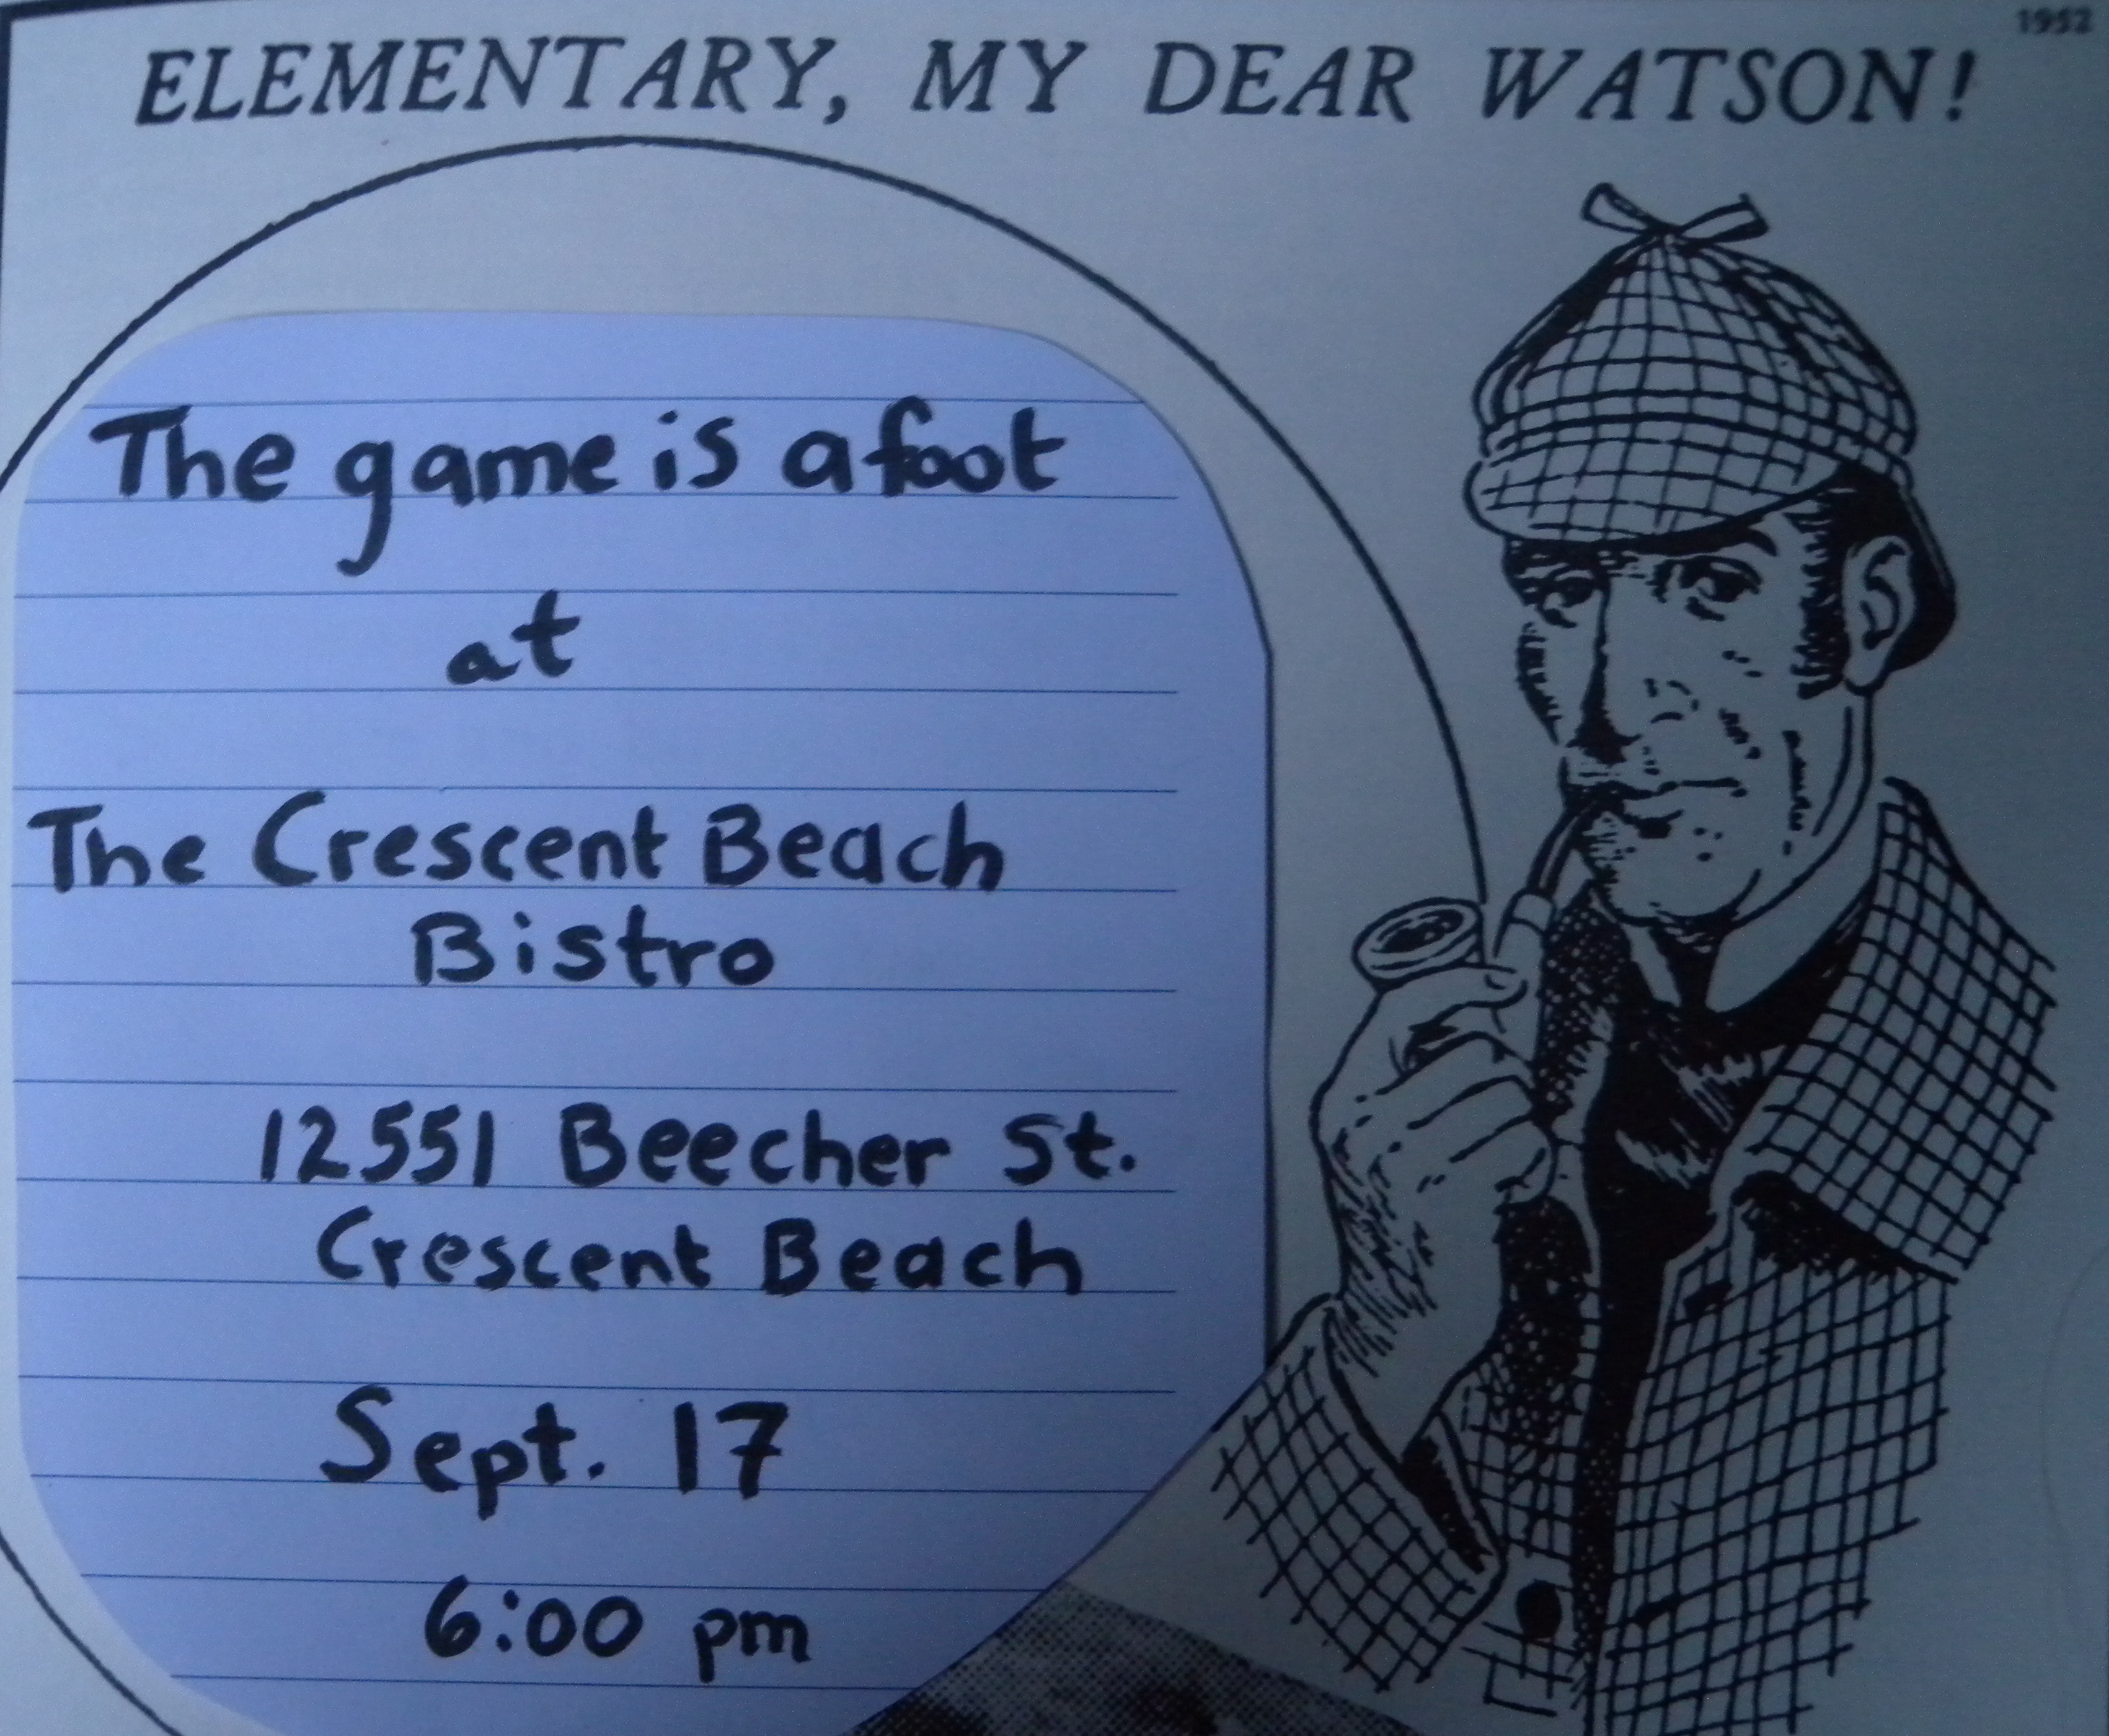 1952
ELEMENTARY, MY DEAR WATSON!
The game is afoot
at
The Crescent Beach
Bistro
12551 Beecher St.
Crescent Beach
Sept. 17
6:00 pm